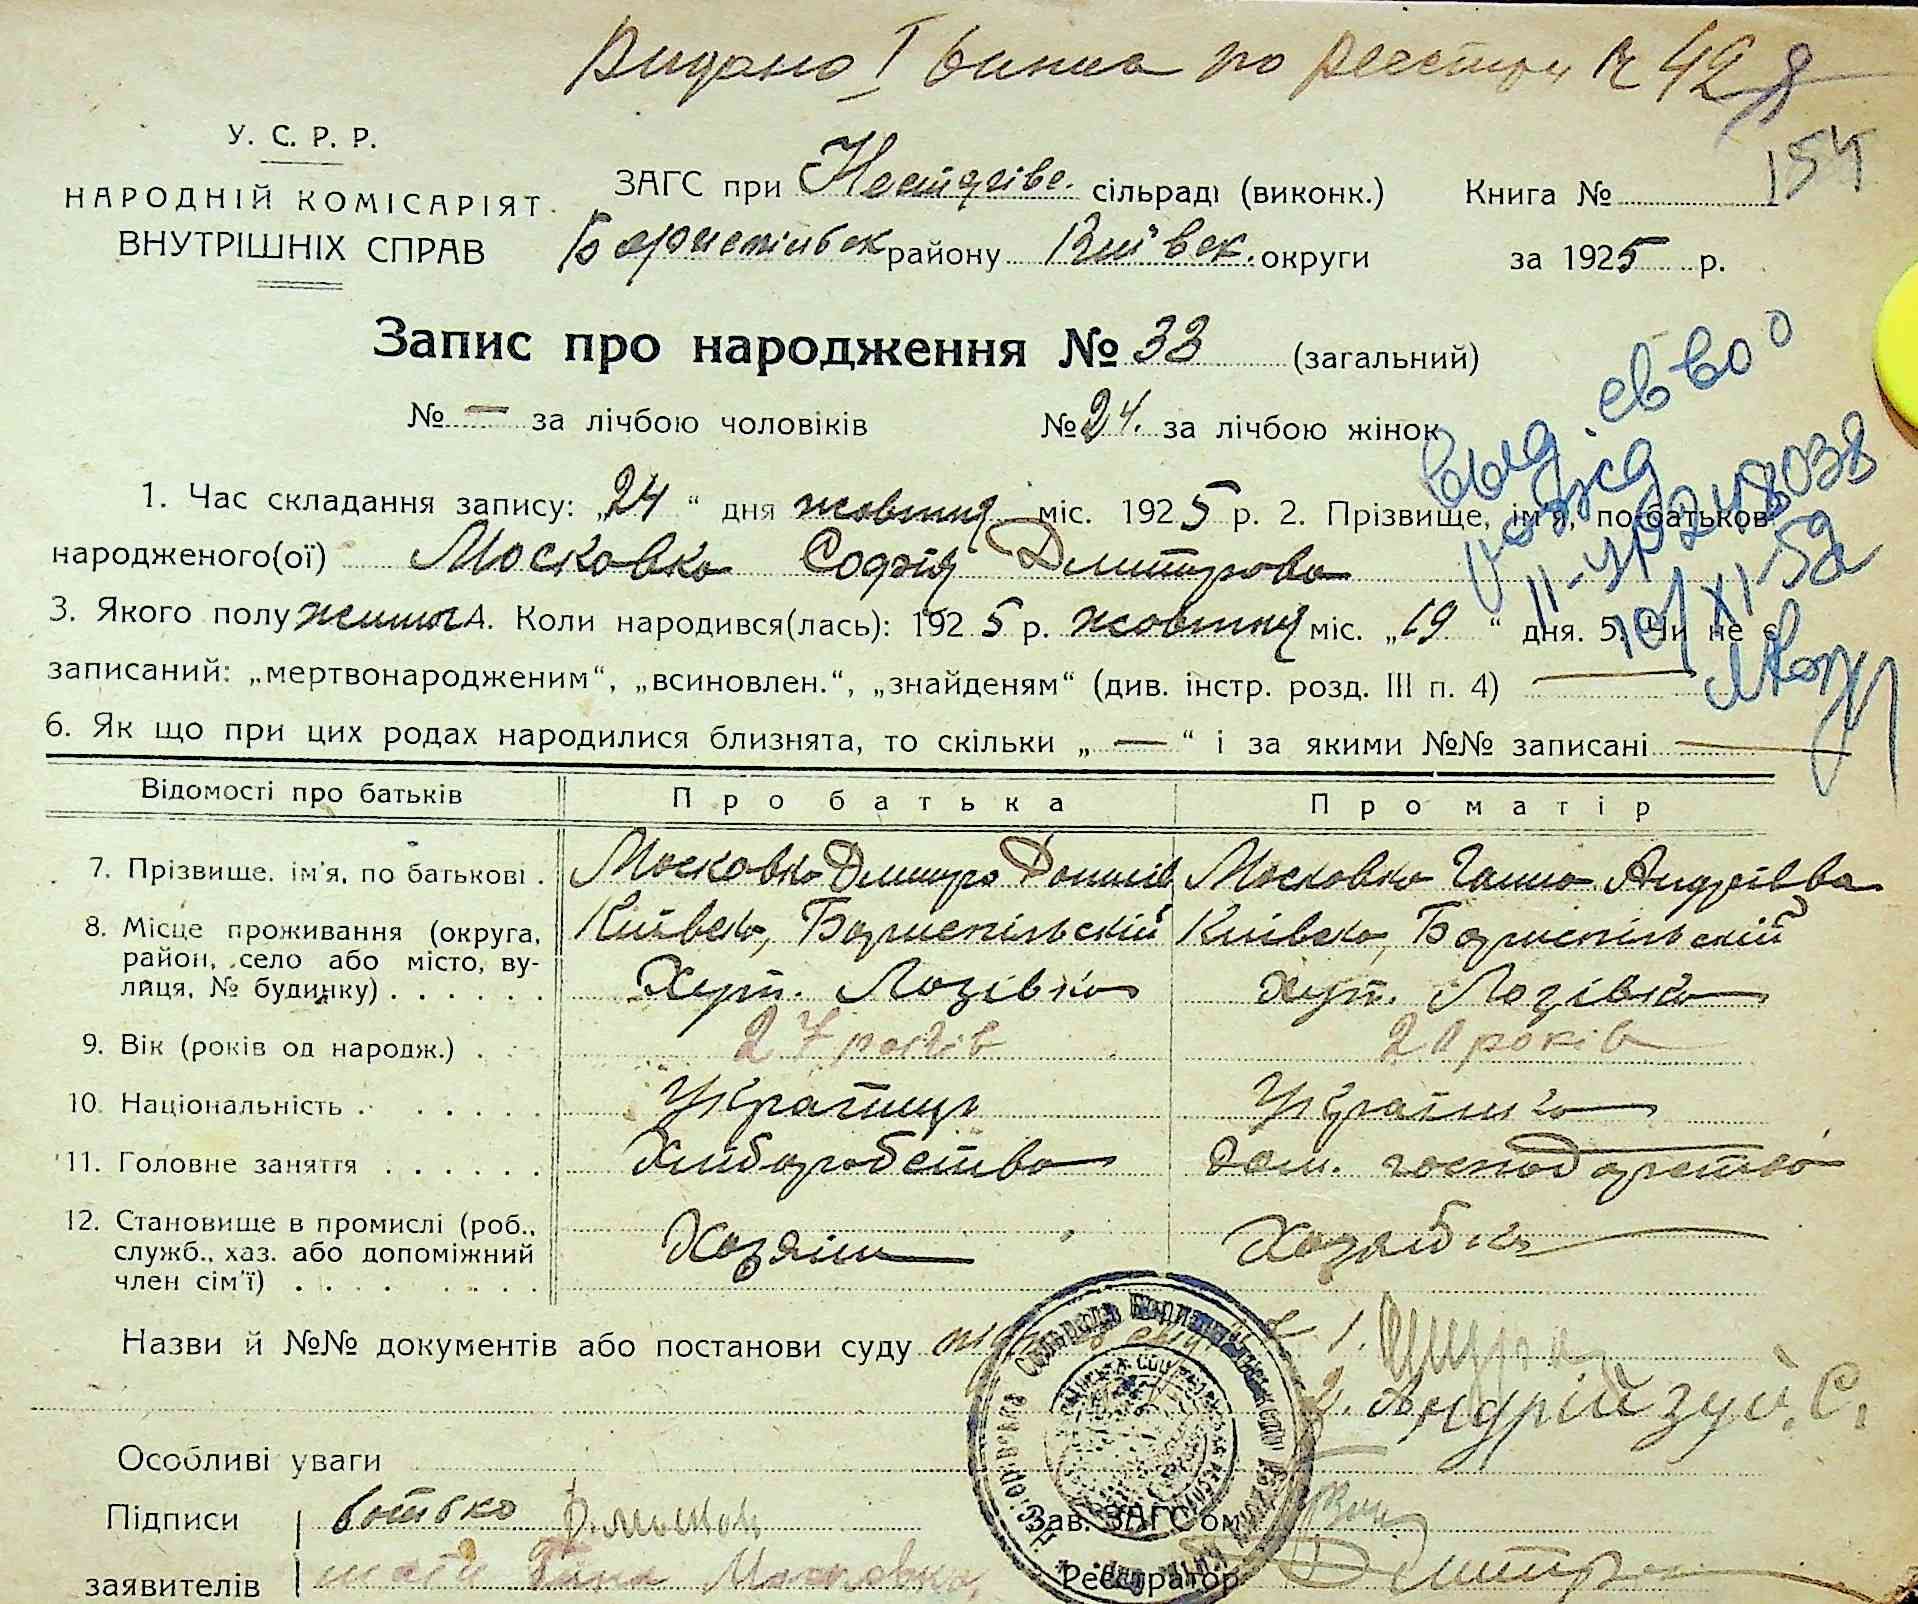 Видано І винис по реестру № 428
154
У. С. Р. Р.
НАРОДНІЙ КОМІСАРІЯТ
ВНУТРІШНІХ СПРАВ
ЗАГС при Нестерівс. сільраді (виконк.) Книга №
Бориспільск району Київськ. округи за 1925 р.
Запис про народження № 33 (загальний)
№ — за лічбою чоловіків № 24. за лічбою жінок
1. Час складання запису: „24“ дня жовтня міс. 1925 р. 2. Прізвище, ім'я, по батьков
народженого(ої) Московко Софія Дмитрова
3. Якого полу жиноч. 4. Коли народився(лась): 1925 р. жовтня міс. „19“ дня. 5. Чи не є
записаний: „мертвонародженим“, „всиновлен.“, „знайденям“ (див. інстр. розд. III п. 4) —
6. Як що при цих родах народилися близнята, то скільки „ — “ і за якими №№ записані —
выд. св во о
рожд
II-УР 248038
10/XI-52
Відомості про батьків Про батька Про матір
7. Прізвище, ім'я, по батькові . Московко Дмитро Данилів Московко Ганна Андріївва
8. Місце проживання (округа, район, село або місто, вулиця, № будинку) . . . . . . Київська, Бориспільський Київська, Бориспільський
Хут. Лозівка хут. Лозівка
9. Вік (років од народж.) . 27 років 20 років
10. Національність . . . . . . Українець Українка
11. Головне заняття . . . . . . Хліборобство дом. господарство
12. Становище в промислі (роб., служб., хаз. або допоміжний член сім'ї) . . . . . . . . Хазяїн Хазяйка
Назви й №№ документів або постанови суду 1.
2. Андрій Зуй. С.
Особливі уваги
Підписи батько Д. Москов Зав. ЗАГС'ом
заявителів мати Ганна Московка Реєстратор Дмитр